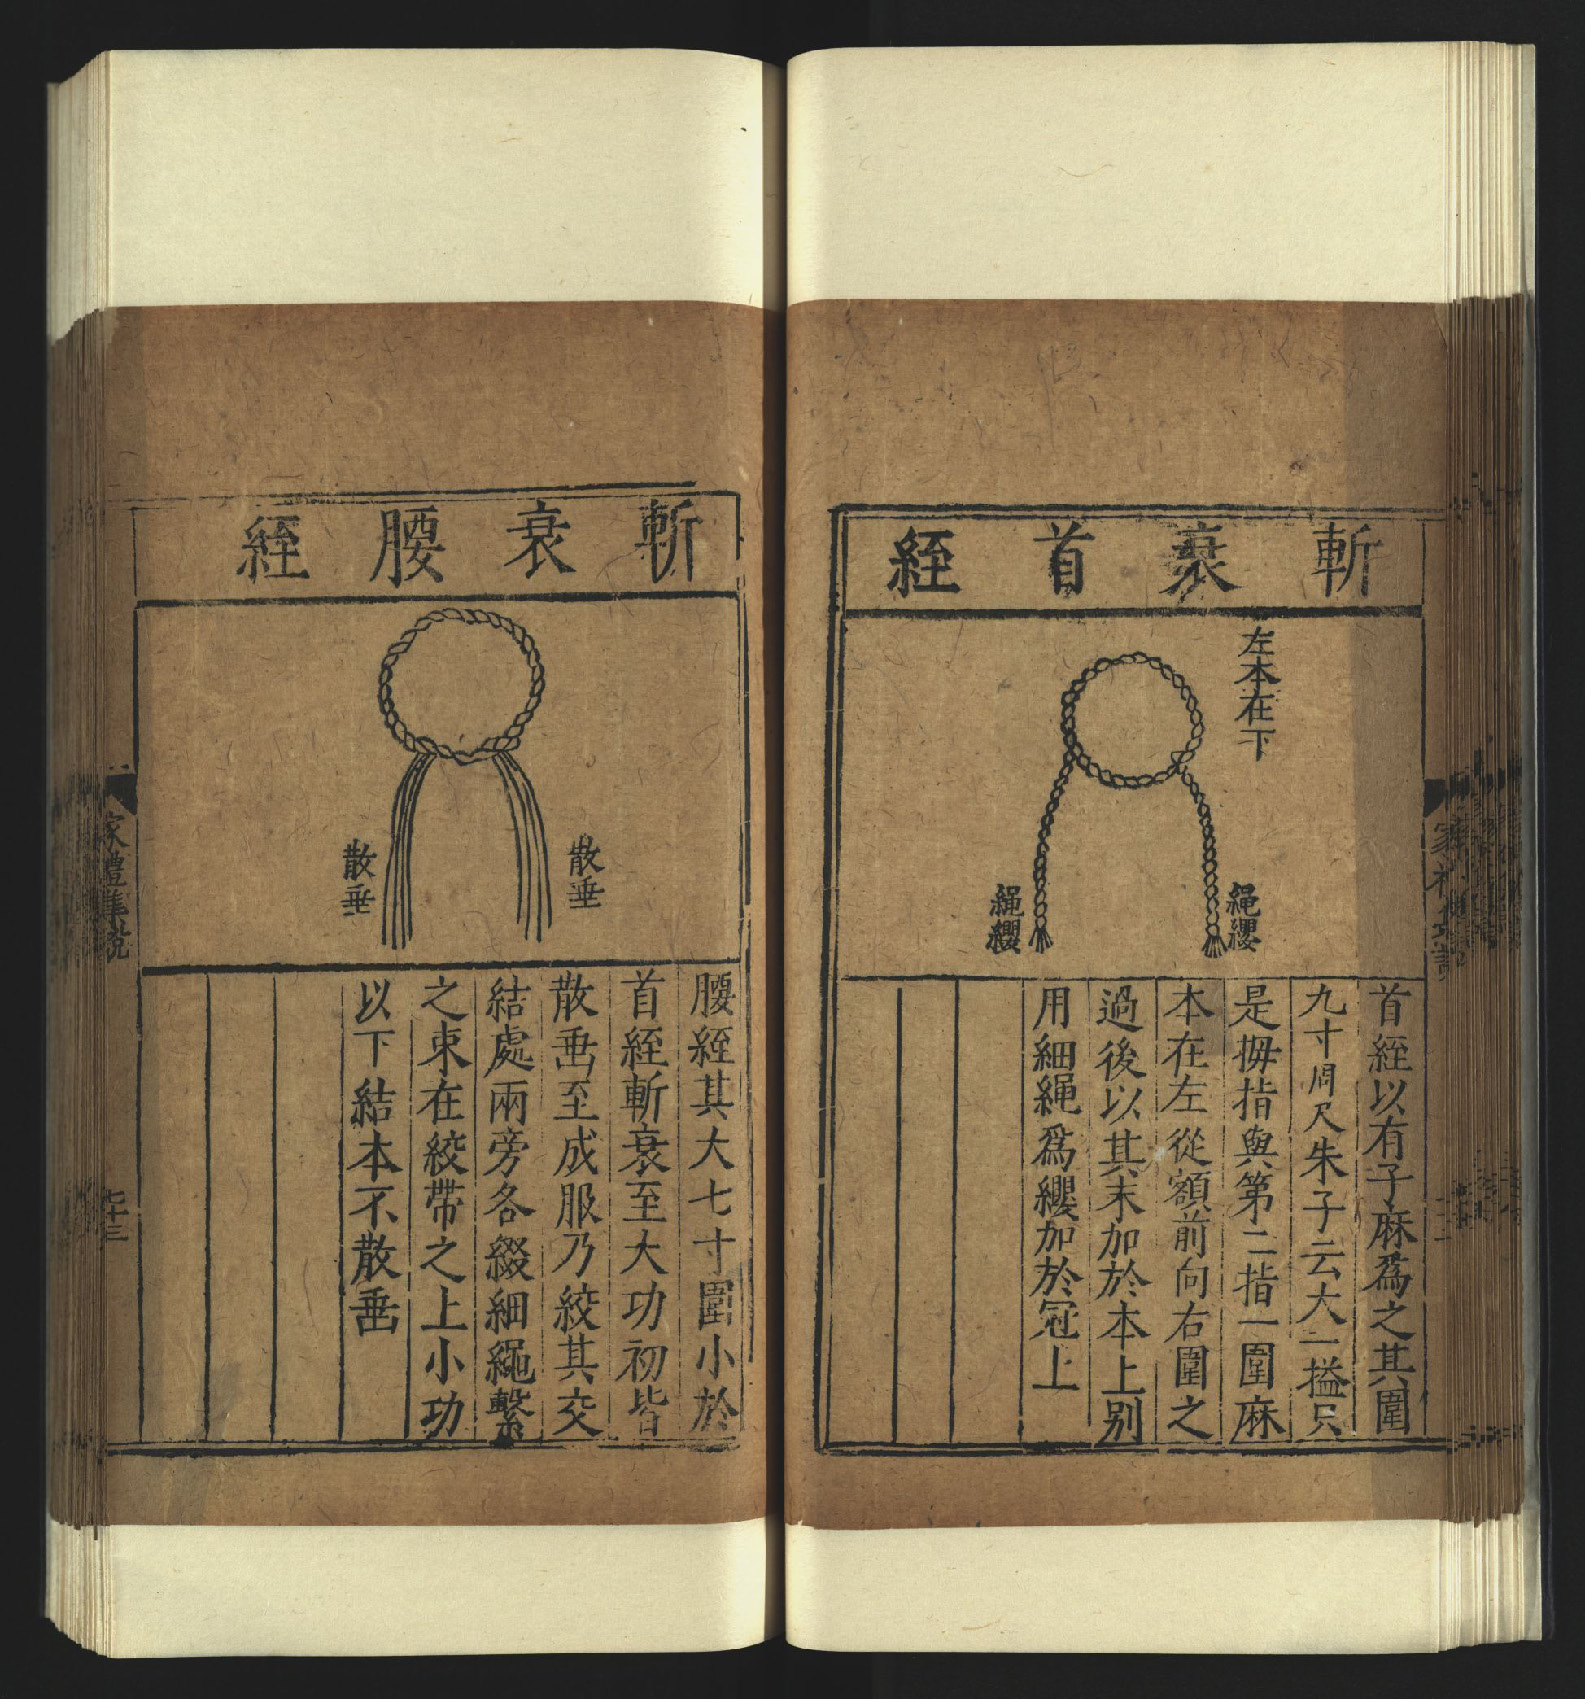 斬衰首絰
左本在下
繩纓
繩纓
首絰以有子麻爲之其圍
九寸周尺朱子云大一搤只
是拇指與第二指一圍麻
本在左從額前向右圍之
過後以其末加於本上别
用細繩爲纓加於冠上
斬衰腰絰
散垂
散垂
腰絰其大七寸圍小於
首絰斬衰至大功初皆
散垂至成服乃絞其交
結處兩旁各綴細繩繫
之束在絞帶之上小功
以下結本不散垂
家禮集説
七十三